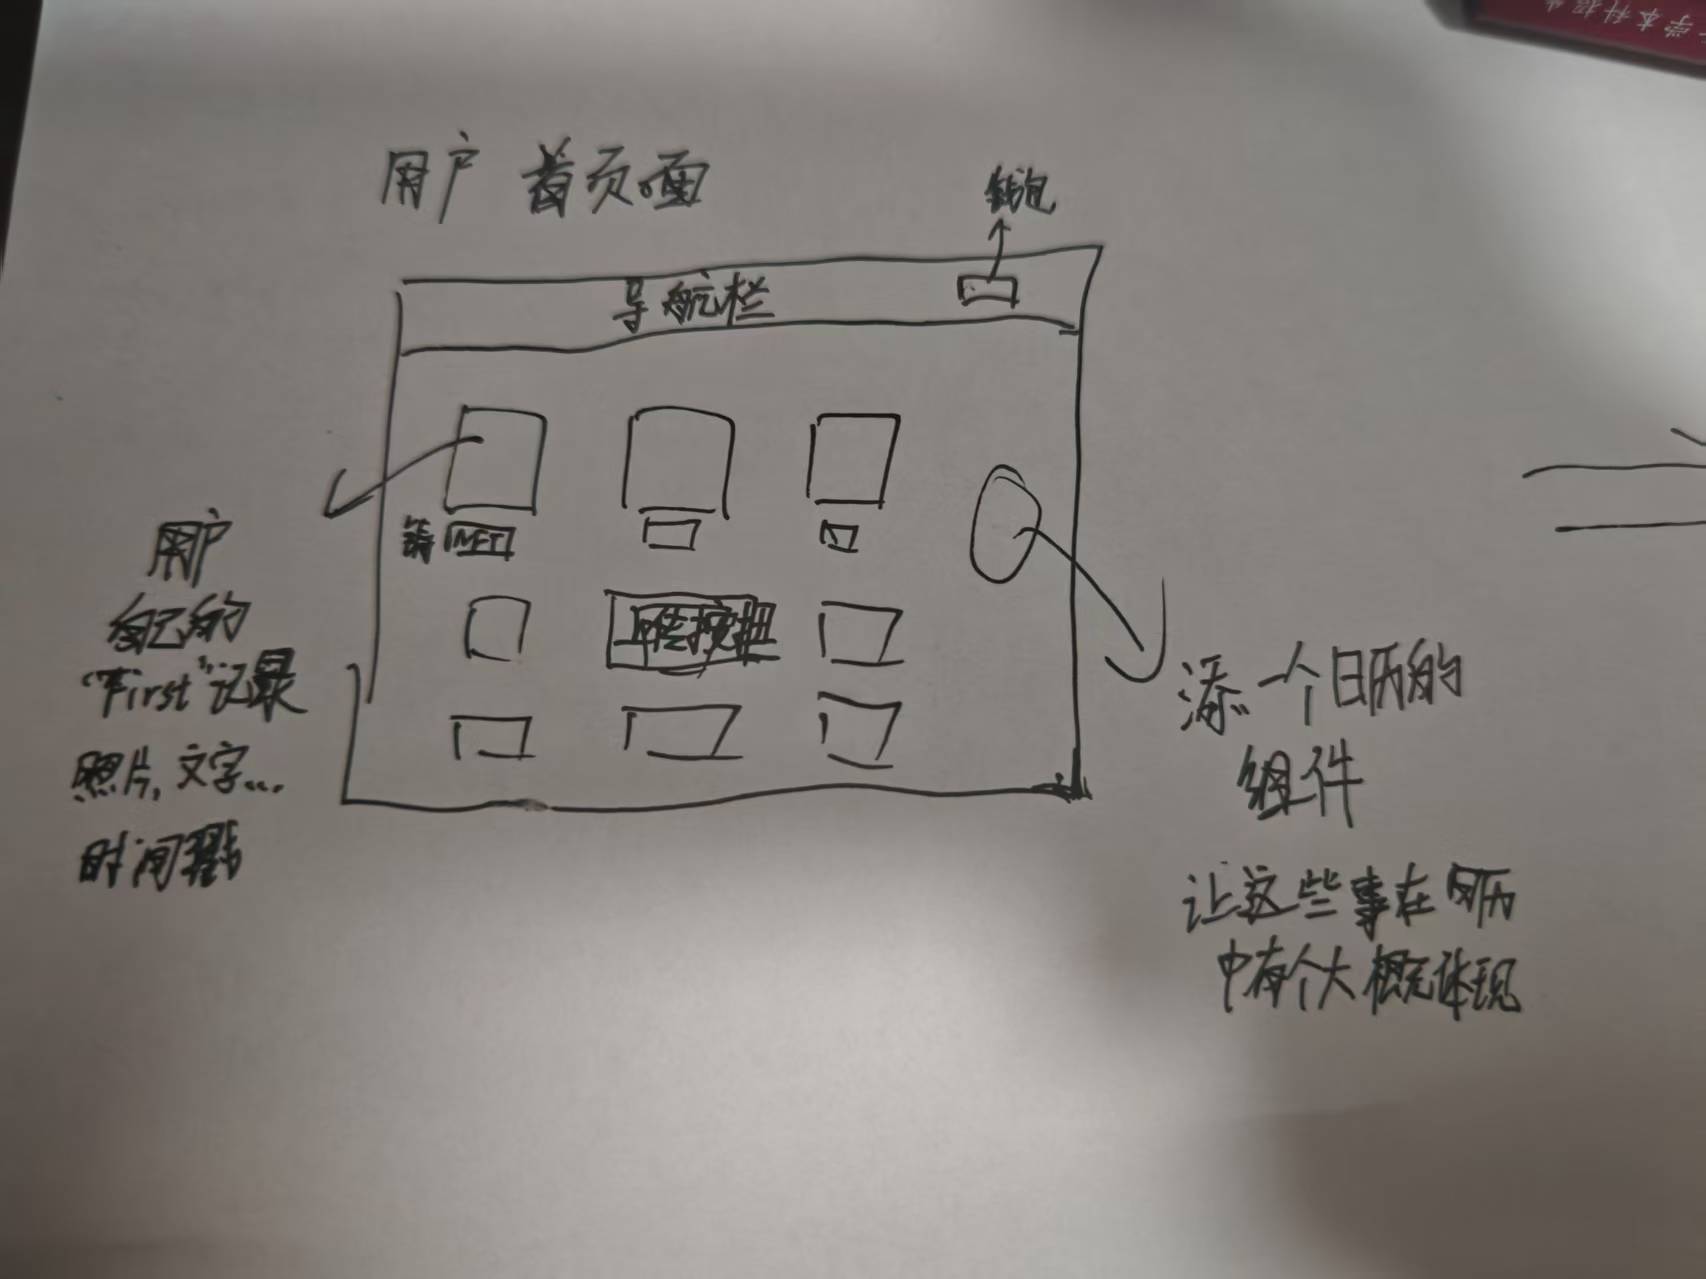 学本科招生
用户首页面
钱包
导航栏
铸 NFT
上传按钮
用户
自己的
“First”记录
照片, 文字...
时间戳
添一个日历的
组件
让这些事在日历
中有个大概体现